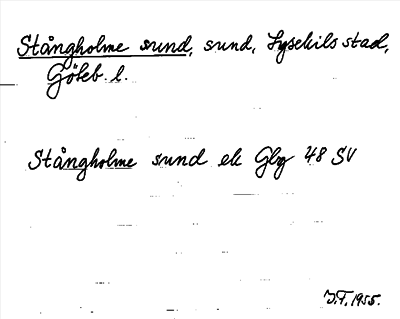 Stångholme sund, sund, Lysekils stad,
Göteb. l.
Stångholme sund ek Glbg 48 SV
J.F. 1955.